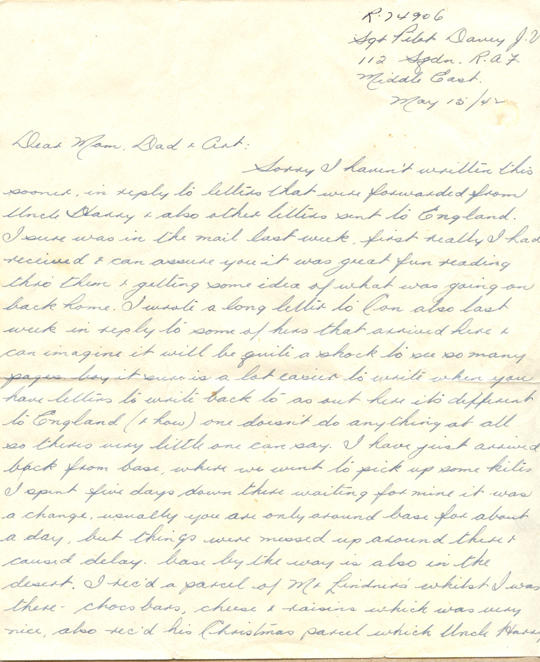 R.74906
Sgt Pilot Davey J.V
112 Sqdn. R.A.F
Middle East.
May 15/42
Dear Mom, Dad & Art:
Sorry I haven't written this
sooner, in reply to letters that were forwarded from
Uncle Harry & also other letters sent to England.
I sure was in the mail last week, first really I had
received & can assure you it was great fun reading
thro them & getting some idea of what was going on
back home. I wrote a long letter to Con also last
week in reply to some of hers that arrived here &
can imagine it will be quite a shock to see so many
pages boy it sure is a lot easier to write when you
have letters to write back to as out here its different
to England (& how) one doesn't do anything at all
so theres very little one can say. I have just arrived
back from base, where we went to pick up some kites
I spent five days down there waiting for mine it was
a change, usually you are only around base for about
a day, but things were messed up around there &
caused delay. base by the way is also in the
desert. I rec'd a parcel of Mr Lindner's whilst I was
there - chocs bars, cheese & raisins which was very
nice, also rec'd his Christmas parcel which Uncle Harry